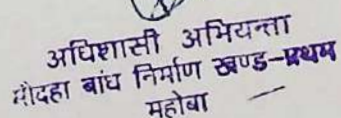 अधिशासी अभियन्ता
मौदहा बांध निर्माण खण्ड-प्रथम
महोबा